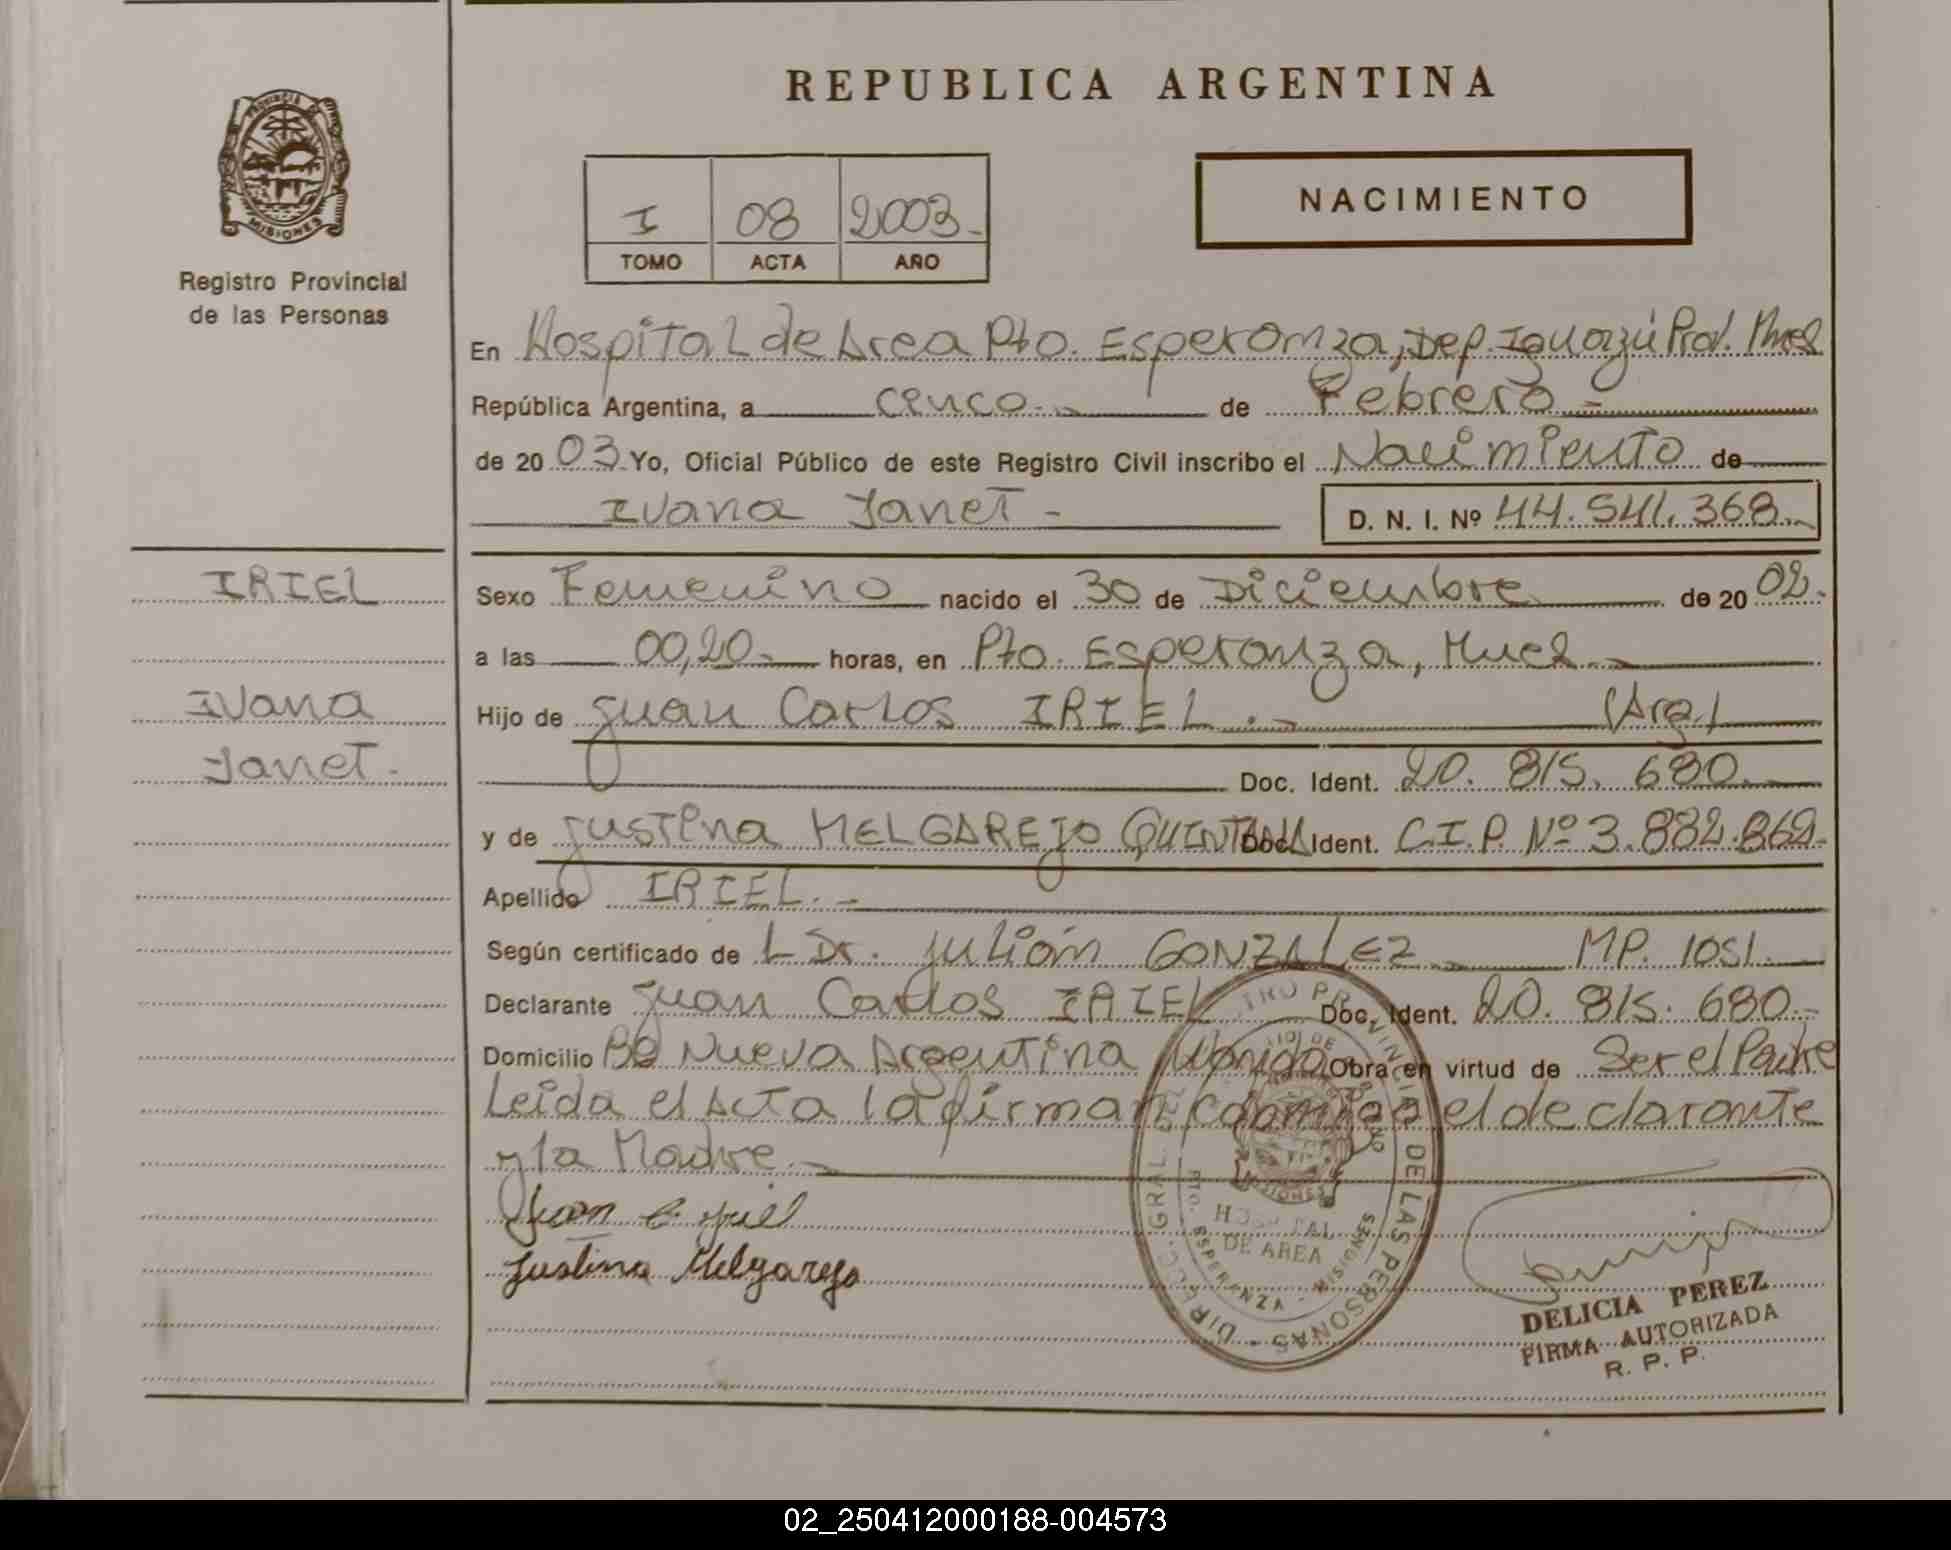 REPUBLICA ARGENTINA
PROVINCIA DE
MISIONES
Registro Provincial
de las Personas
I 08 2003.
TOMO ACTA AÑO
NACIMIENTO
En Hospital de Area Pto. Esperanza, Dep. Iguazú Prov. Mnes
República Argentina, a cinco.- de Febrero.-
de 20 03 Yo, Oficial Público de este Registro Civil inscribo el Nacimiento de
Ivana Janet - D. N. I. Nº 44.541.368.-
IRIEL
Ivana
Janet.-
Sexo Femenino nacido el 30 de Diciembre de 20 02.
a las 00,20.- horas, en Pto. Esperanza, Mnes.-
Hijo de Juan Carlos IRIEL.- (Arg.)
Doc. Ident. 20. 815. 680.-
y de Justina MELGAREJO QUINTANA Doc. Ident. C.I.P. Nº 3.882.862.
Apellido IRIEL.-
Según certificado de L Dr. Julián GONZALEZ.- MP. 1051.
Declarante Juan Carlos IRIEL Doc. Ident. 20. 815. 680.-
Domicilio Bº Nueva Argentina Obra en virtud de Ser el Padre
Leida el Acta la firman conmigo el declarante
y la Madre.-
Juan C Iriel
Justina Melgarejo
DE LAS PERSONAS
HOSPITAL
DE AREA
PTO. ESPERANZA - MISIONES
DELICIA PEREZ
FIRMA AUTORIZADA
R. P. P.
02_250412000188-004573